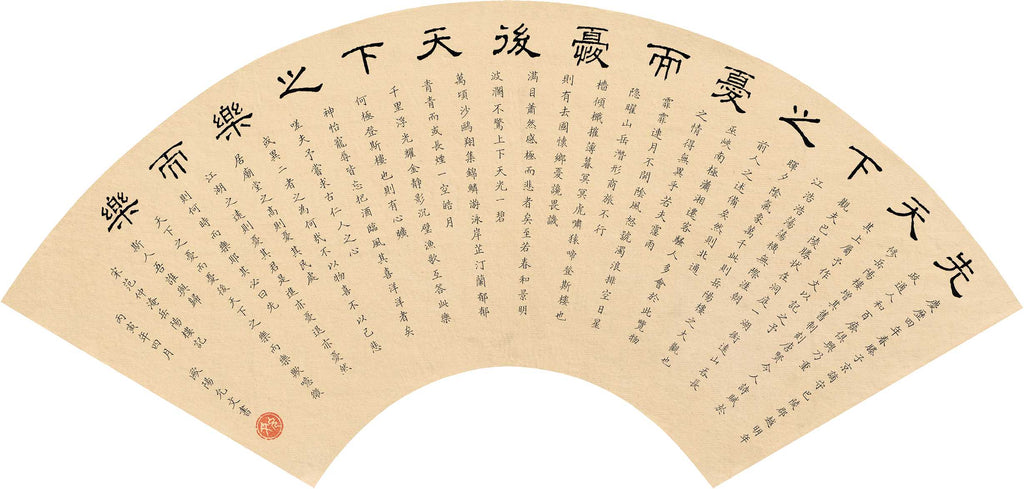 先天下之憂而憂後天下之樂而樂
慶歷四年春滕子京謫守巴陵郡越明年
政通人和百廢俱興乃重
修岳陽樓增其舊制刻唐賢今人詩賦於
其上屬予作文以記之予
觀夫巴陵勝狀在洞庭一湖銜遠山吞長
江浩浩蕩蕩橫無際涯朝
暉夕陰氣象萬千此則岳陽樓之大觀也
前人之述備矣然則北通
巫峽南極瀟湘遷客騷人多會於此覽物
之情得無異乎若夫霪雨
霏霏連月不開陰風怒號濁浪排空日星
隱曜山岳潛形商旅不行
檣傾楫摧薄暮冥冥虎嘯猿啼登斯樓也
則有去國懷鄉憂讒畏譏
滿目蕭然感極而悲者矣至若春和景明
波瀾不驚上下天光一碧
萬頃沙鷗翔集錦鱗游泳岸芷汀蘭郁郁
青青而或長煙一空皓月
千里浮光耀金靜影沉璧漁歌互答此樂
何極登斯樓也則有心曠
神怡寵辱皆忘把酒臨風其喜洋洋者矣
嗟夫予嘗求古仁人之心
或異二者之為何哉不以物喜不以己悲
居廟堂之高則憂其民處
江湖之遠則憂其君是進亦憂退亦憂然
則何時而樂耶其必曰先
天下之憂而憂後天下之樂而樂歟噫微
斯人吾誰與歸
宋范仲淹岳陽樓記
丙寅年四月 歐陽允文書